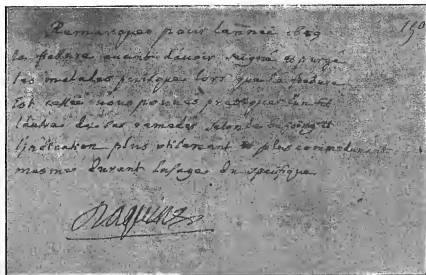 Remarques pour lannée 1689
la fiebure auant dauoir seigné & purgé
les malades puisque lors que la fiebure
est cessée nous pouuons pratiquer l'un et
l'autre de ces remedes selon le besoing et
l'indication plus utilement & plus commodement
mesmes durant l'usage du specifique
Daquin
190